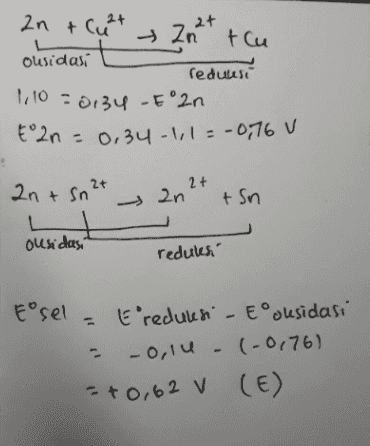 Zn + Cu²⁺ → Zn²⁺ + Cu
oksidasi
reduksi
1,10 = 0,34 - E°Zn
E°Zn = 0,34 - 1,1 = -0,76 V
Zn + Sn²⁺ → Zn²⁺ + Sn
oksidasi
reduksi
E°sel = E°reduksi - E°oksidasi
= -0,14 - (-0,76)
= +0,62 V (E)